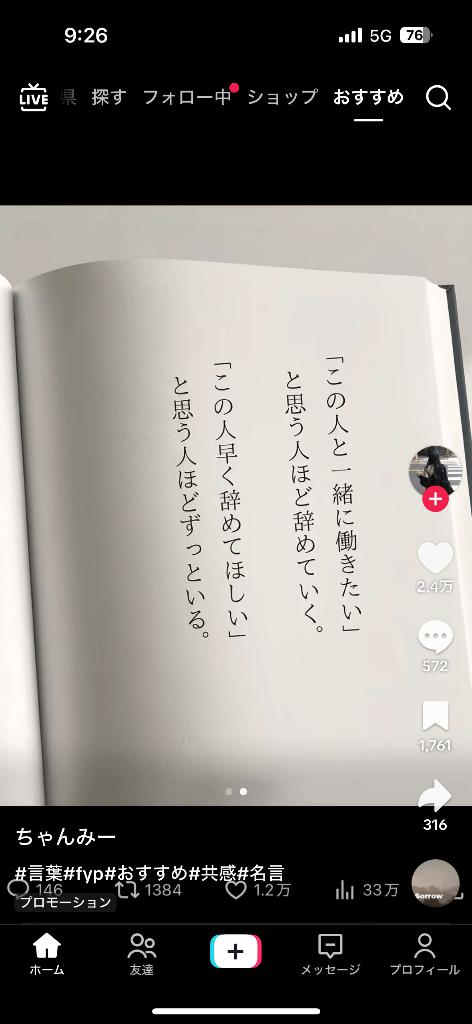 9:26
5G
76
LIVE
県 探す フォロー中 ショップ おすすめ
「この人と一緒に働きたい」
と思う人ほど辞めていく。
「この人早く辞めてほしい」
と思う人ほどずっといる。
2.4万
572
1,761
316
ちゃんみー
#言葉#fyp#おすすめ#共感#名言
146 1384 1.2万 33万
Sorrow
プロモーション
ホーム 友達 メッセージ プロフィール